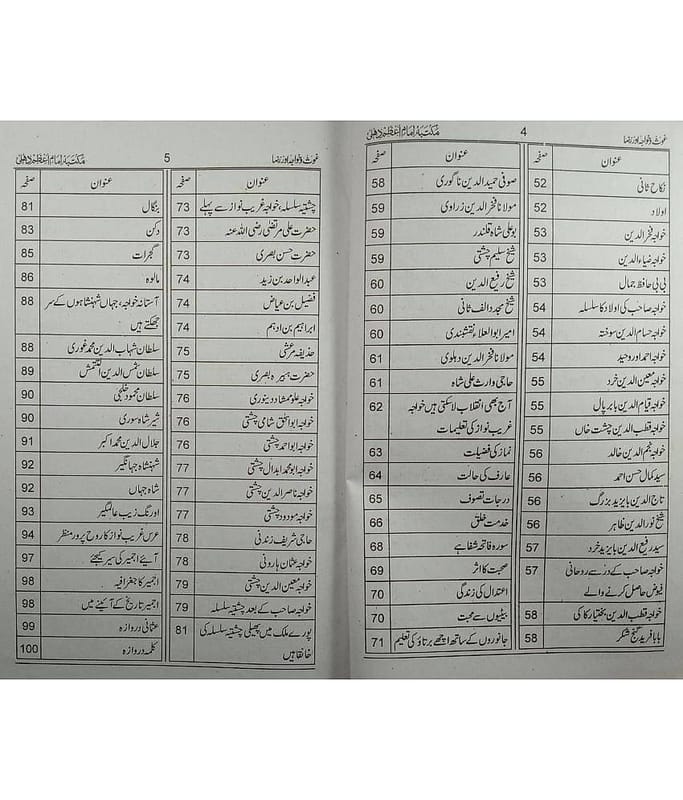 غوث و خواجہ اور رضا 4 مکتبہ امام اعظم دہلی
عنوان صفحہ
نکاح ثانی 52
اولاد 52
خواجہ فخر الدین 53
خواجہ ضیاء الدین 53
بی بی حافظ جمال 53
خواجہ صاحب کی اولاد کا سلسلہ 54
خواجہ حسام الدین سوختہ 54
خواجہ احمد اور وحید 54
خواجہ معین الدین خرد 55
خواجہ قیام الدین بابریال 55
خواجہ قطب الدین چشت خاں 55
خواجہ نجم الدین خالد 56
سید کمال حسن احمد 56
تاج الدین بایزید بزرگ 56
شیخ نور الدین طاہر 56
سید رفیع الدین بایزید خرد 57
خواجہ صاحب کے در سے روحانی 57
فیوض حاصل کرنے والے
خواجہ قطب الدین بختیار کاکی 58
بابا فرید گنج شکر 58
عنوان صفحہ
صوفی حمید الدین ناگوری 58
مولانا فخر الدین زراوی 59
بوعلی شاہ قلندر 59
شیخ سلیم چشتی 59
شیخ رفیع الدین 60
شیخ مجدد الف ثانی 60
امیر ابوالعلاء نقشبندی 60
مولانا فخر الدین دہلوی 61
حاجی وارث علی شاہ 61
آج بھی انقلاب لا سکتی ہیں خواجہ 62
غریب نواز کی تعلیمات
نماز کی فضیلت 63
عارف کی حالت 64
درجات تصوف 65
خدمت خلق 66
سورہ فاتحہ شفا ہے 68
صحبت کا اثر 69
اعتدال کی زندگی 70
بیٹیوں سے محبت 70
جانوروں کے ساتھ اچھے برتاؤ کی تعلیم 71
غوث و خواجہ اور رضا 5 مکتبہ امام اعظم دہلی
عنوان صفحہ
چشتیہ سلسلہ، خواجہ غریب نواز سے پہلے 73
حضرت علی مرتضیٰ رضی اللہ عنہ 73
حضرت حسن بصری 73
عبدالواحد بن زید 74
فضیل بن عیاض 74
ابراہیم بن ادہم 74
حذیفہ مرعشی 75
حضرت ہبیرہ بصری 75
خواجہ علو ممشاد دینوری 76
خواجہ ابو اسحٰق شامی چشتی 76
خواجہ ابو احمد چشتی 76
خواجہ ابو محمد ابدال چشتی 77
خواجہ ناصر الدین چشتی 77
خواجہ مودود چشتی 77
حاجی شریف زندنی 78
خواجہ عثمان ہارونی 78
خواجہ معین الدین چشتی 79
خواجہ صاحب کے بعد چشتیہ سلسلہ 79
پورے ملک میں پھیلی چشتیہ سلسلہ کی 81
خانقاہیں
عنوان صفحہ
بنگال 81
دکن 83
گجرات 85
مالوہ 86
آستانہ خواجہ، جہاں شہنشاہوں کے سر 88
جھکتے ہیں
سلطان شہاب الدین محمد غوری 88
سلطان شمس الدین التمش 89
سلطان محمود خلجی 90
شیر شاہ سوری 90
جلال الدین محمد اکبر 91
شہنشاہ جہانگیر 92
شاہ جہاں 92
اورنگ زیب عالمگیر 93
عرس غریب نواز کا روح پرور منظر 94
آیئے اجمیر کی سیر کیجئے 97
اجمیر کا جغرافیہ 98
اجمیر تاریخ کے آئینے میں 98
عثمانی دروازہ 99
کلمہ دروازہ 100